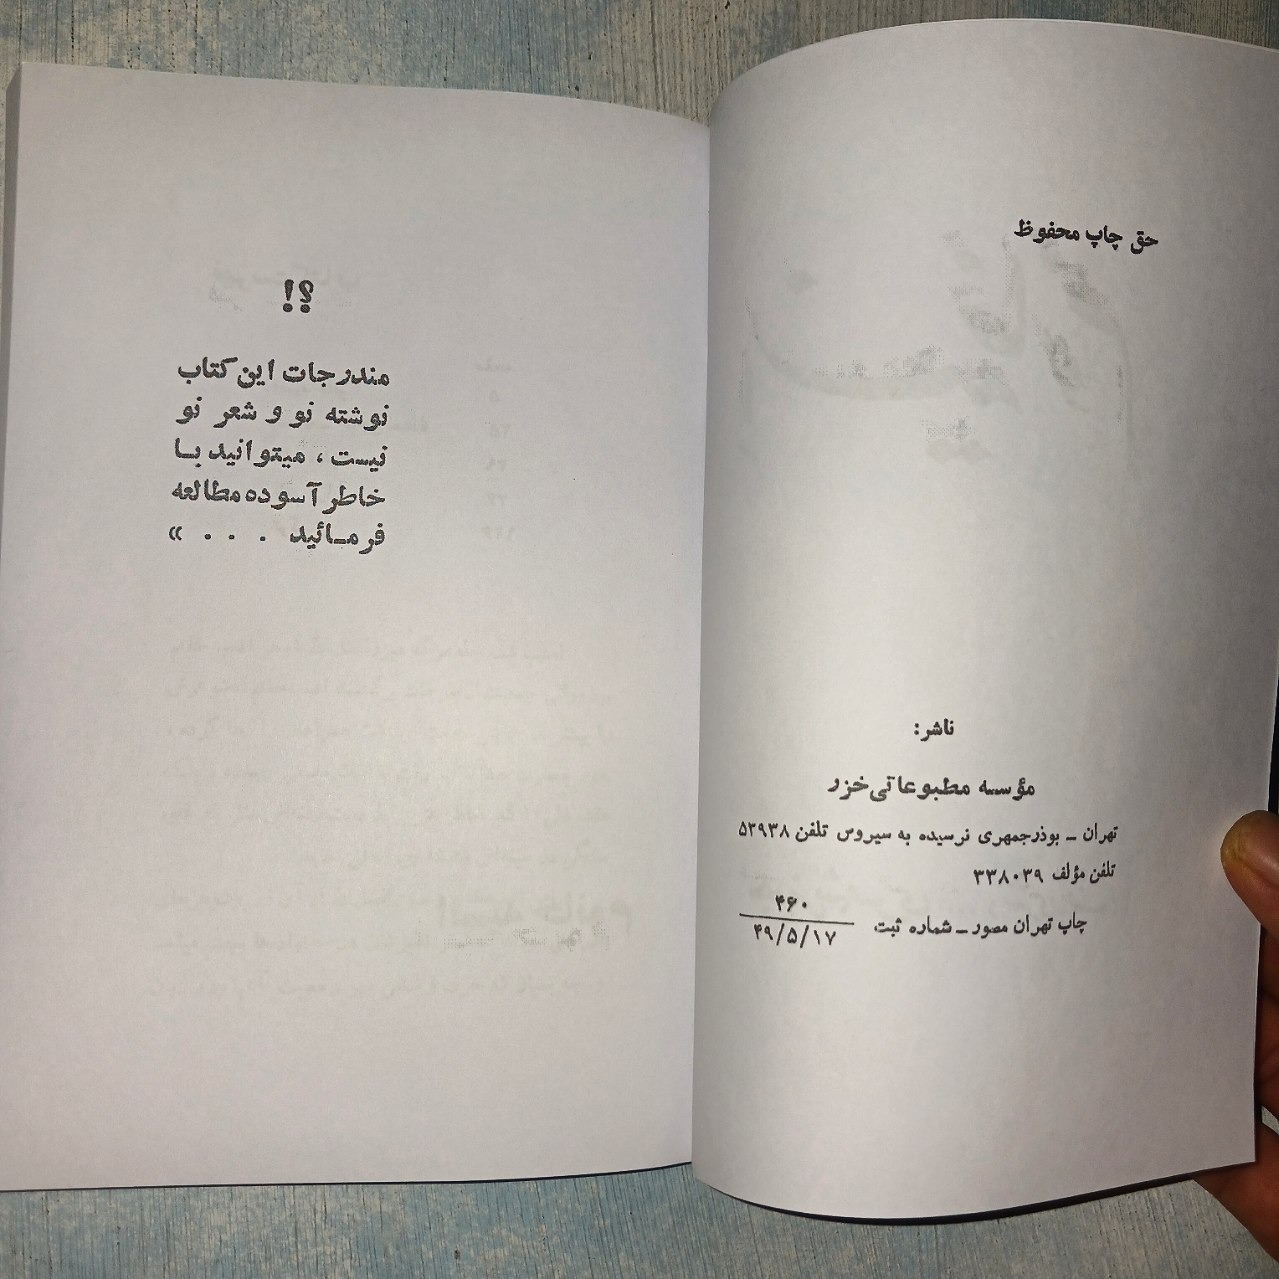 حق چاپ محفوظ
ناشر:
مؤسسه مطبوعاتی خزر
تهران ـ بوذرجمهری نرسیده به سیروس تلفن ۵۳۹۳۸
تلفن مؤلف ۳۳۸۰۳۹
چاپ تهران مصور ـ شماره ثبت ۴۶۰
۴۹/۵/۱۷
؟!
مندرجات این کتاب
نوشته نو و شعر نو
نیست ، میتوانید بـا
خاطر آسوده مطالعه
فرمـائید . . . »